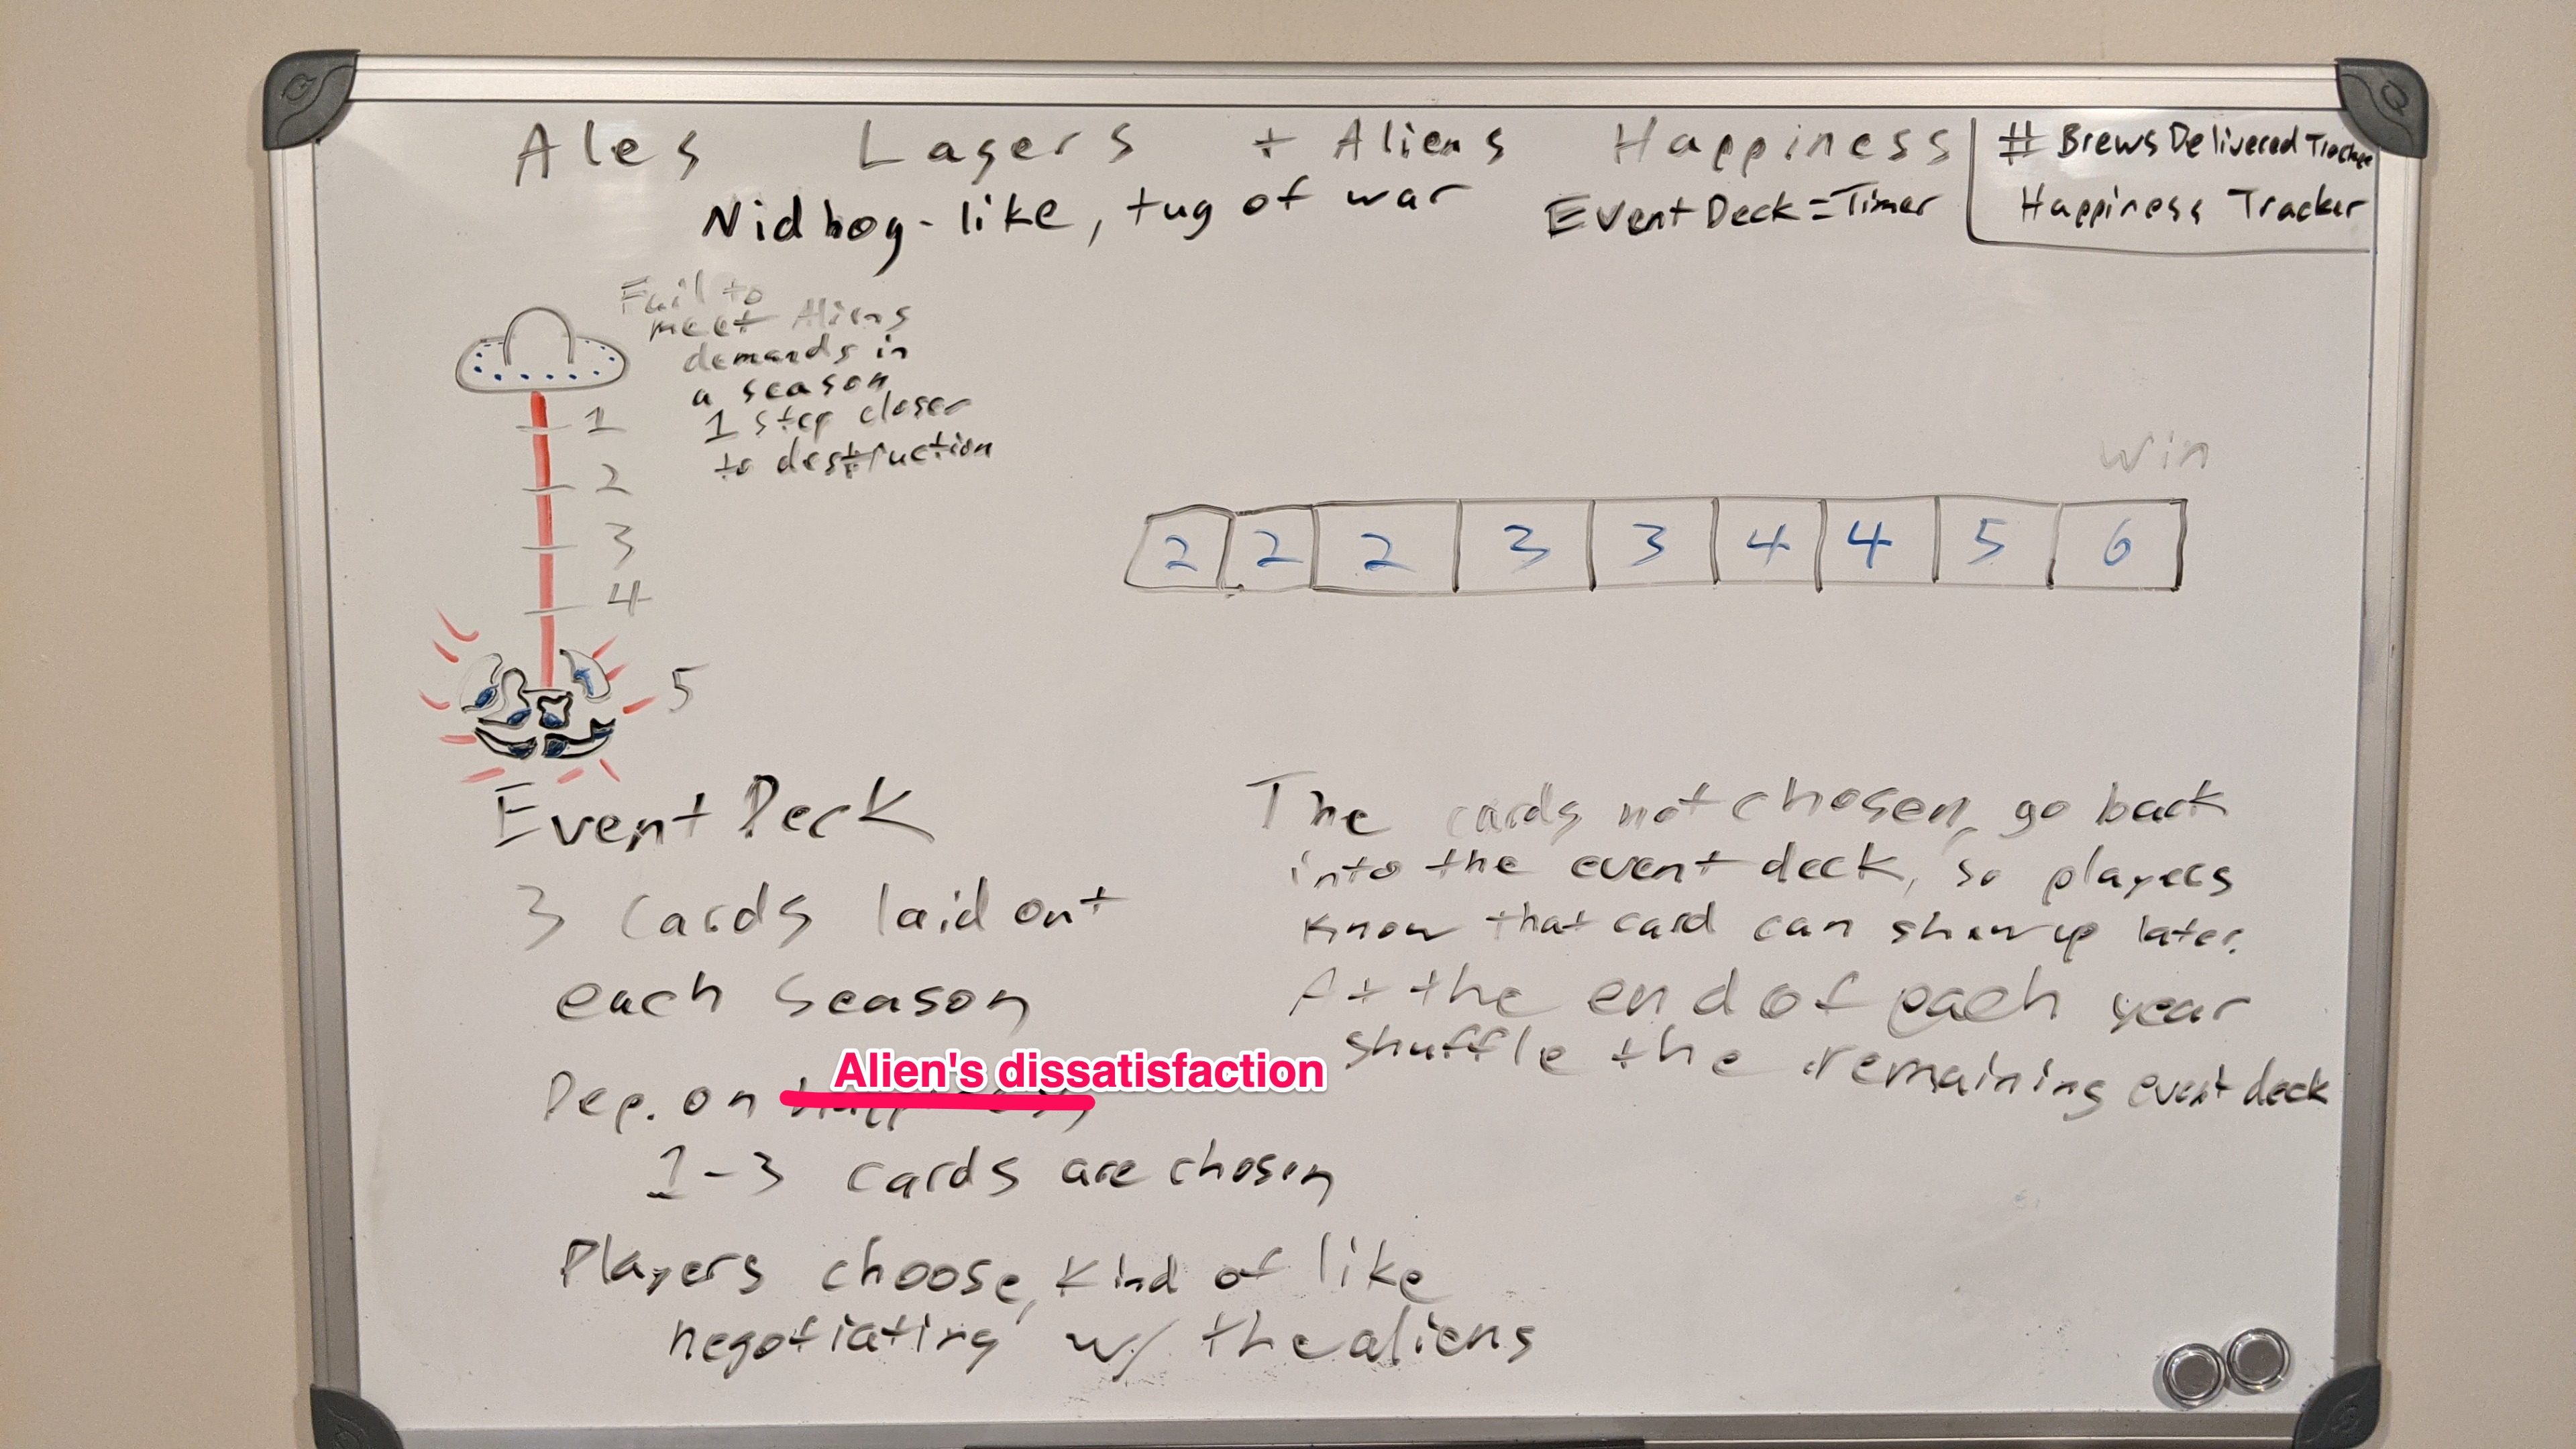 Ales Lagers + Aliens Happiness
Nidhog-like, tug of war
Event Deck = Timer
# Brews Delivered Tracker
Happiness Tracker
Fail to
meet Aliens
demands in
a season
1 step closer
to destruction
1
2
3
4
5
Win
2 2 2 3 3 4 4 5 6
Event Deck
3 cards laid out
each season
Alien's dissatisfaction
Dep. on Happiness
1-3 cards are chosen
Players choose, kind of like
negotiating w/ the aliens
The cards not chosen, go back
into the event deck, so players
know that card can show up later.
At the end of each year
shuffle the remaining event deck